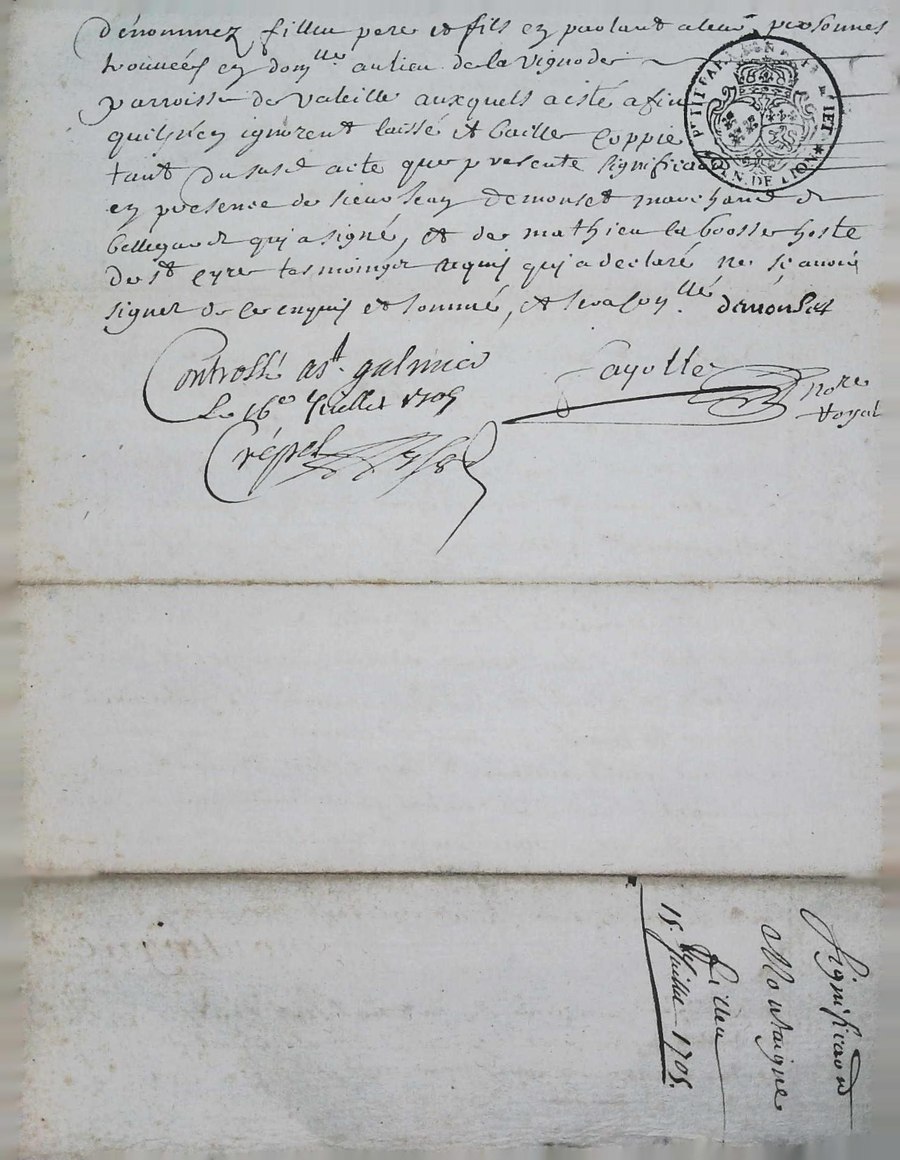 dénommez filleu pere et fils en parlant a leurs personnes
trouvées en dom.lle au lieu de la vignode
parroisse de valeille auxquels ay esté afin
quils n'en ignorent laissé et baillé coppie
tant du susd acte que presente significa
en presence de sieur Jean demonset marchand de
bellegarde qui a signé, et de mathieu la boosse hoste
de st Cyre tesmoings requis qui a declaré ne sçavoir
signer de ce enquis et sommé,
demonset
Controllé a st. galmier
Le 16e Juillet 1705
Crépet
Fayolle
Nore
Royal
DE LION
Signification
Montaigne
filleu
15 Juillet 1705.